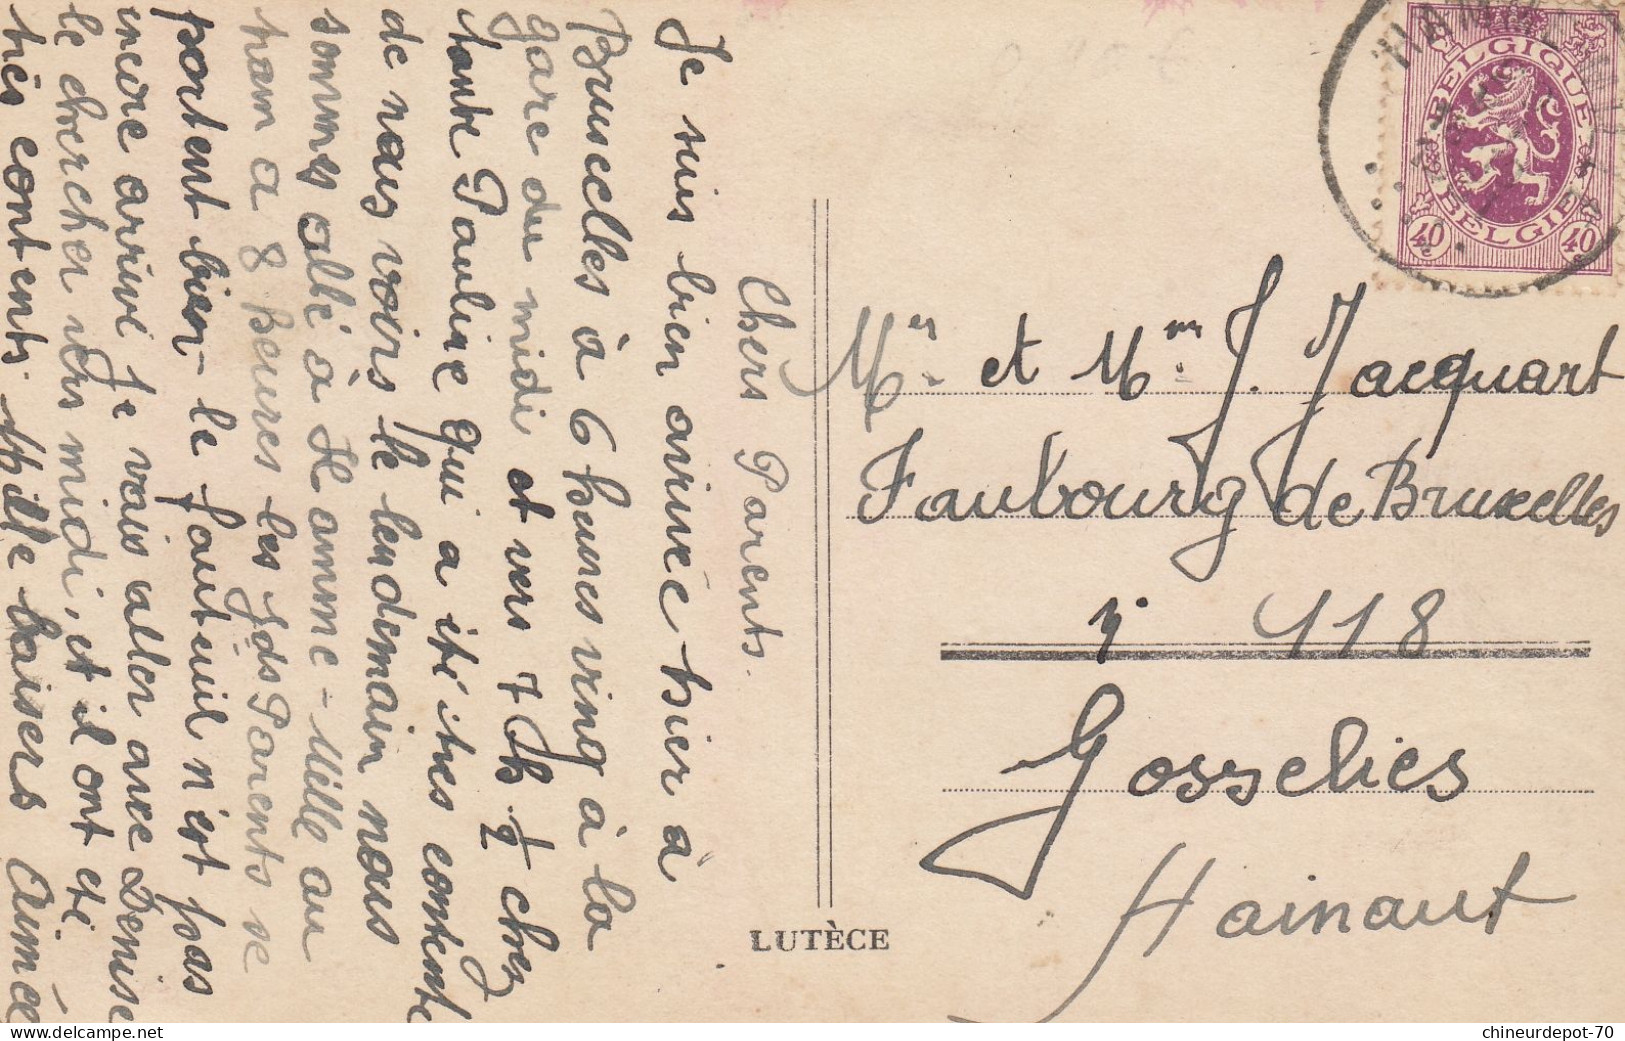 Chers Parents.
Je suis bien arrivée hier à
Bruscelles à 6 heures ving à la
gare du midi et vers 7 h ½ chez
tante Pauline qui a été tres contente
de nous voirs le lendemain nous
sommes allé à Hamme-Mille au
tram a 8 heures les gds Parents se
portent bien - le fauteuil n'est pas
encore arrivé je vais aller avec Denise
le chercher vers midi, et il ont eté
très contents. Mille baisers Aimée
LUTÈCE
BELGIQUE
BELGIE
40c 40c
HAMME-MILLE
Mr. et Mme. J. Jacquart
Faubourg de Bruxelles
118
Gosselies
Hainaut
chineurdepot-70